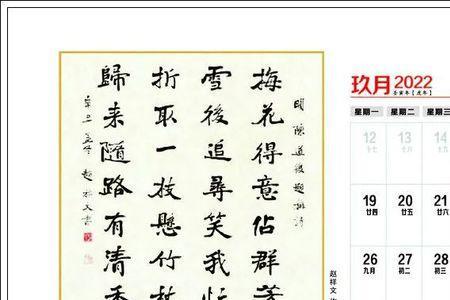 明陳道復題梅詩
梅花得意佔群芳
雪後追尋笑我忙
折取一枝懸竹杖
歸来随路有清香
趙祥文書
玖月2022
壬寅年【虎年】
星期一 星期二 星期三
12 13 14
十七 十八 十九
19 20 21
廿四 廿五 廿六
26 27 28
九月 初二 初三
赵祥文